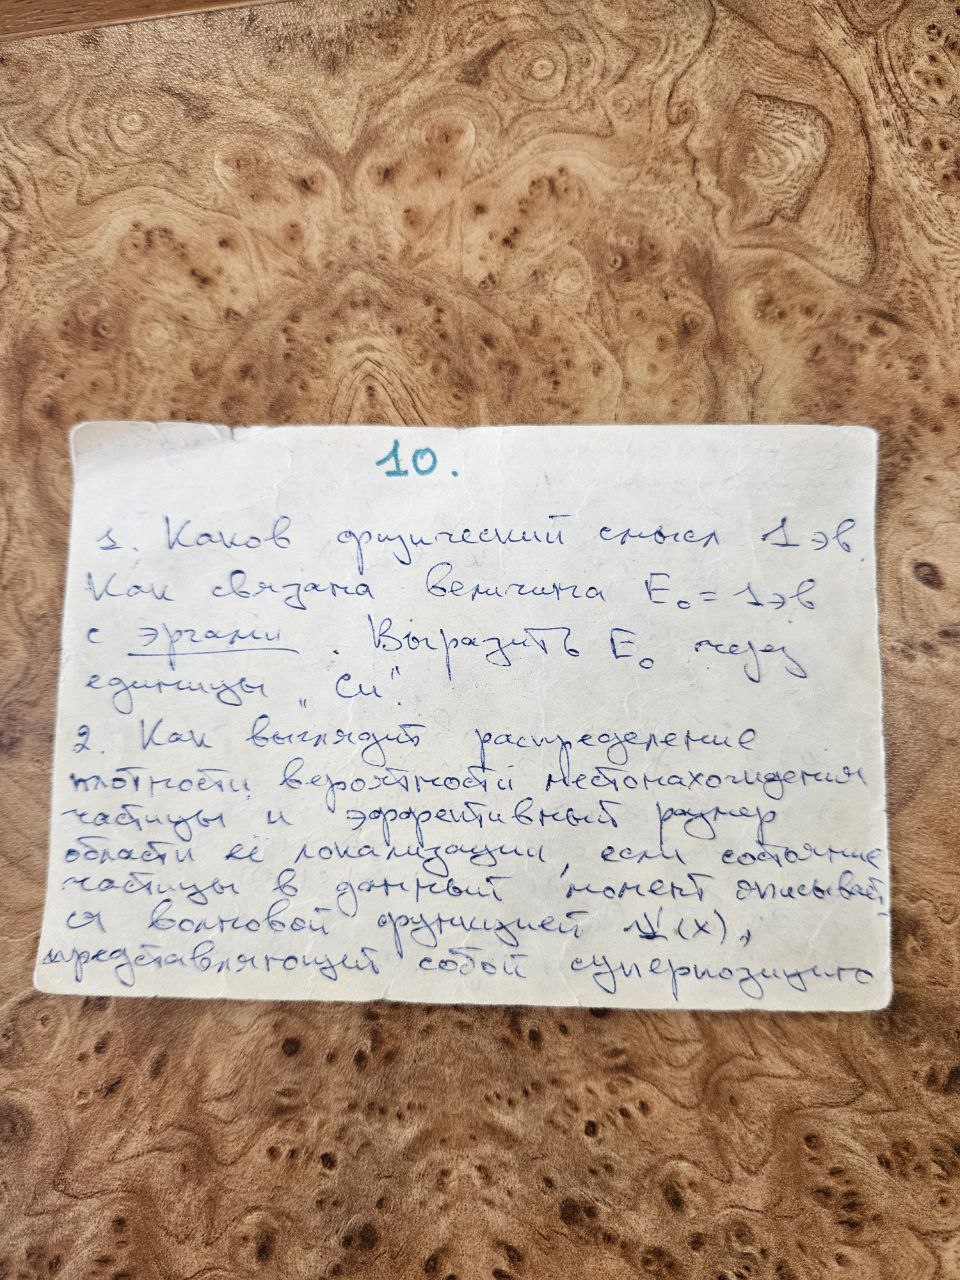 10.
1. Каков физический смысл 1 эв.
Как связана величина E₀ = 1 эв
с эргами. Выразить E₀ через
единицы "Си".
2. Как выглядит распределение
плотности вероятности местонахождения
частицы и эффективный размер
области её локализации, если состояние
частицы в данный момент описывает-
ся волновой функцией Ψ(x),
представляющей собой суперпозицию